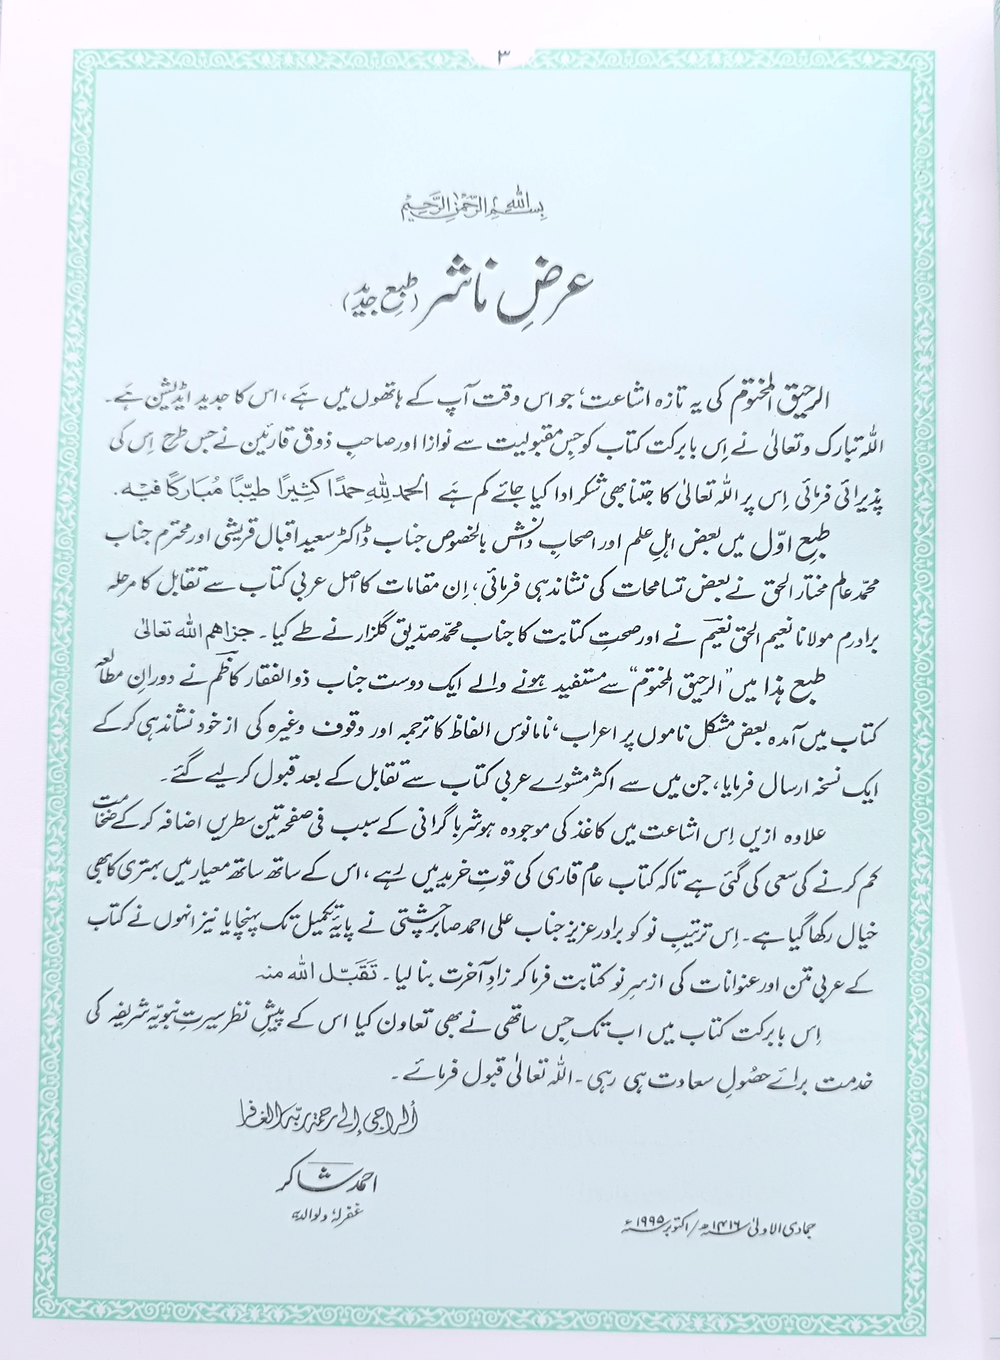 ۳
بسم اللہ الرحمن الرحیم
عرضِ ناشر (طبع جدید)
الرحیق المختوم کی یہ تازہ اشاعت، جو اس وقت آپ کے ہاتھوں میں ہے، اس کا جدید ایڈیشن ہے۔
اللہ تبارک وتعالیٰ نے اِس بابرکت کتاب کو جس مقبولیت سے نوازا اور صاحبِ ذوق قارئین نے جس طرح اِس کی
پذیرائی فرمائی اِس پر اللہ تعالیٰ کا جتنا بھی شکر ادا کیا جائے کم ہے الحمد للہ حمدًا کثیرًا طیّبًا مُبارکًا فیہ۔
طبع اوّل میں بعض اہلِ علم اور اصحابِ دانش بالخصوص جناب ڈاکٹر سعید اقبال قریشی اور محترم جناب
محمد عالم مختار الحق نے بعض تسامحات کی نشاندہی فرمائی، اِن مقامات کا اصل عربی کتاب سے تقابل کا مرحلہ
برادرم مولانا نعیم الحق نعیم نے اور صحتِ کتابت کا جناب محمد صدیق گلزار نے طے کیا۔ جزاھم اللہ تعالیٰ
طبع ہذا میں ”الرحیق المختوم“ سے مستفید ہونے والے ایک دوست جناب ذوالفقار کاظم نے دورانِ مطالعہ
کتاب میں آمدہ بعض مشکل ناموں پر اعراب، نامانوس الفاظ کا ترجمہ اور وقوف وغیرہ کی از خود نشاندہی کر کے
ایک نسخہ ارسال فرمایا، جن میں سے اکثر مشورے عربی کتاب سے تقابل کے بعد قبول کر لیے گئے۔
علاوہ ازیں اِس اشاعت میں کاغذ کی موجودہ ہوشربا گرانی کے سبب فی صفحہ تین سطریں اضافہ کر کے ضخامت
کم کرنے کی سعی کی گئی ہے تاکہ کتاب عام قاری کی قوتِ خرید میں رہے، اس کے ساتھ ساتھ معیار میں بہتری کا بھی
خیال رکھا گیا ہے۔ اِس ترتیبِ نو کو برادر عزیز جناب علی احمد صابر چشتی نے پایۂ تکمیل تک پہنچایا نیز انہوں نے کتاب
کے عربی متن اور عنوانات کی از سرِ نو کتابت فرما کر زادِ آخرت بنا لیا۔ تَقَبّل اللہ منہ
اِس بابرکت کتاب میں اب تک جس ساتھی نے بھی تعاون کیا اس کے پیشِ نظر سیرتِ نبویہ شریفہ کی
خدمت برائے حصُولِ سعادت ہی رہی۔ اللہ تعالیٰ قبول فرمائے۔
ألراجی إلی رحمۃ ربہ الغفار
احمد شاکر
غفر لہ ولوالدیہ
جمادی الاولیٰ ۱۴۱۶ھ/ اکتوبر ۱۹۹۵ء